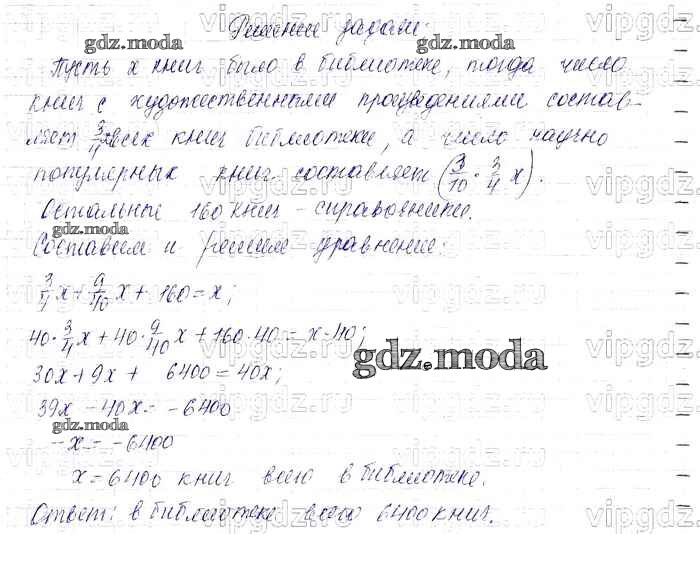 Решение задачи:
Пусть x книг было в библиотеке, тогда число
книг с художественными произведениями состав-
ляет 3/4 x всех книг библиотеки, а число научно
популярных книг составляет (3/10 · 3/4 x).
Остальные 160 книг - справочники.
Составим и решим уравнение:
3/4 x + 9/40 x + 160 = x;
40 · 3/4 x + 40 · 9/40 x + 160 · 40 = x · 40;
30x + 9x + 6400 = 40x;
39x - 40x = -6400
-x = -6400
x = 6400 книг всего в библиотеке.
Ответ: в библиотеке всего 6400 книг.
gdz.moda
gdz.moda
gdz.moda
gdz.moda
gdz.moda
vipgdz.ru